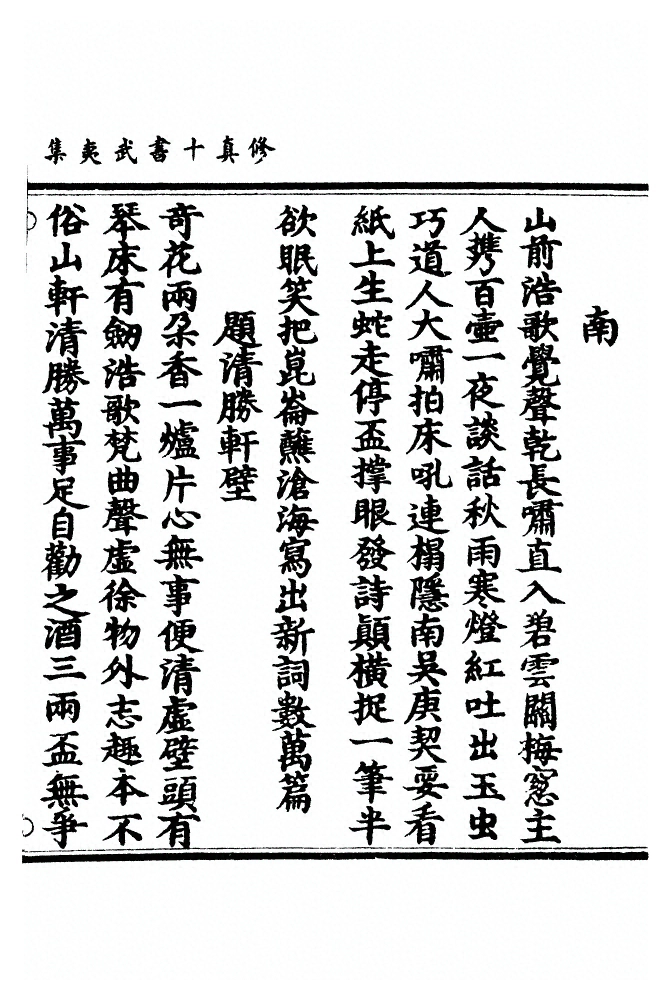 修真十書武夷集
南
山前浩歌覺聲乾長嘯直入碧雲關梅窻主
人携百壷一夜談話秋雨寒燈紅吐出玉虫
巧道人大嘯拍床吼連榻隱南吳庚契要看
紙上生蛇走停盃撑眼發詩顛橫捉一筆半
欲眠笑把崑崙蘸滄海寫出新詞數萬篇
題清勝軒壁
奇花兩朶香一爐片心無事便清虛壁頭有
琴床有劒浩歌梵曲聲虛徐物外志趣本不
俗山軒清勝萬事足自勸之酒三兩盃無爭